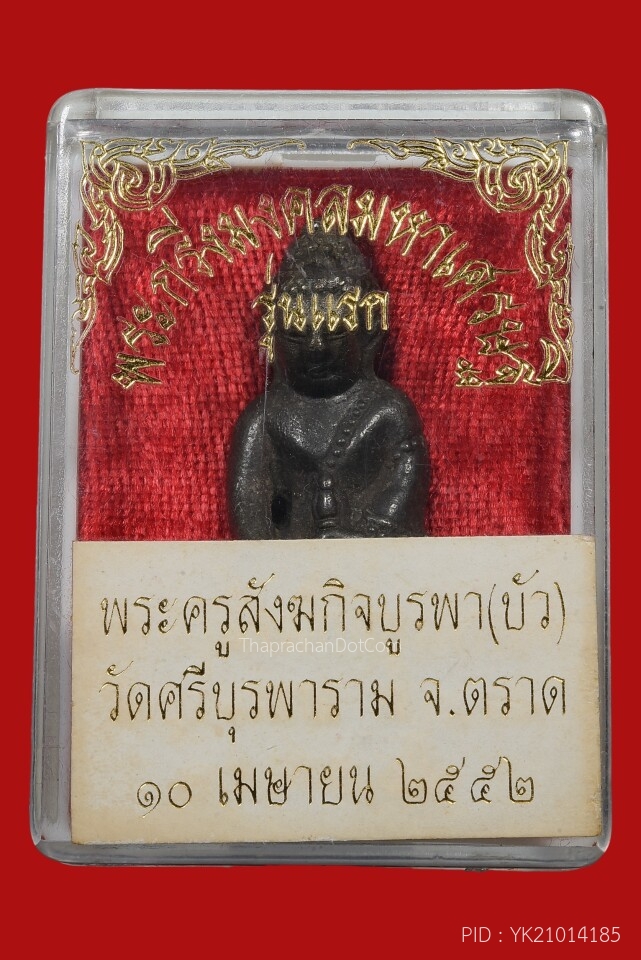 พระกริ่งมงคลมหาเศรษฐี
รุ่นแรก
พระครูสังฆกิจบูรพา(บัว)
ThaprachanDotCom
วัดศรีบุรพาราม จ.ตราด
๑๐ เมษายน ๒๕๕๒
PID : YK21014185